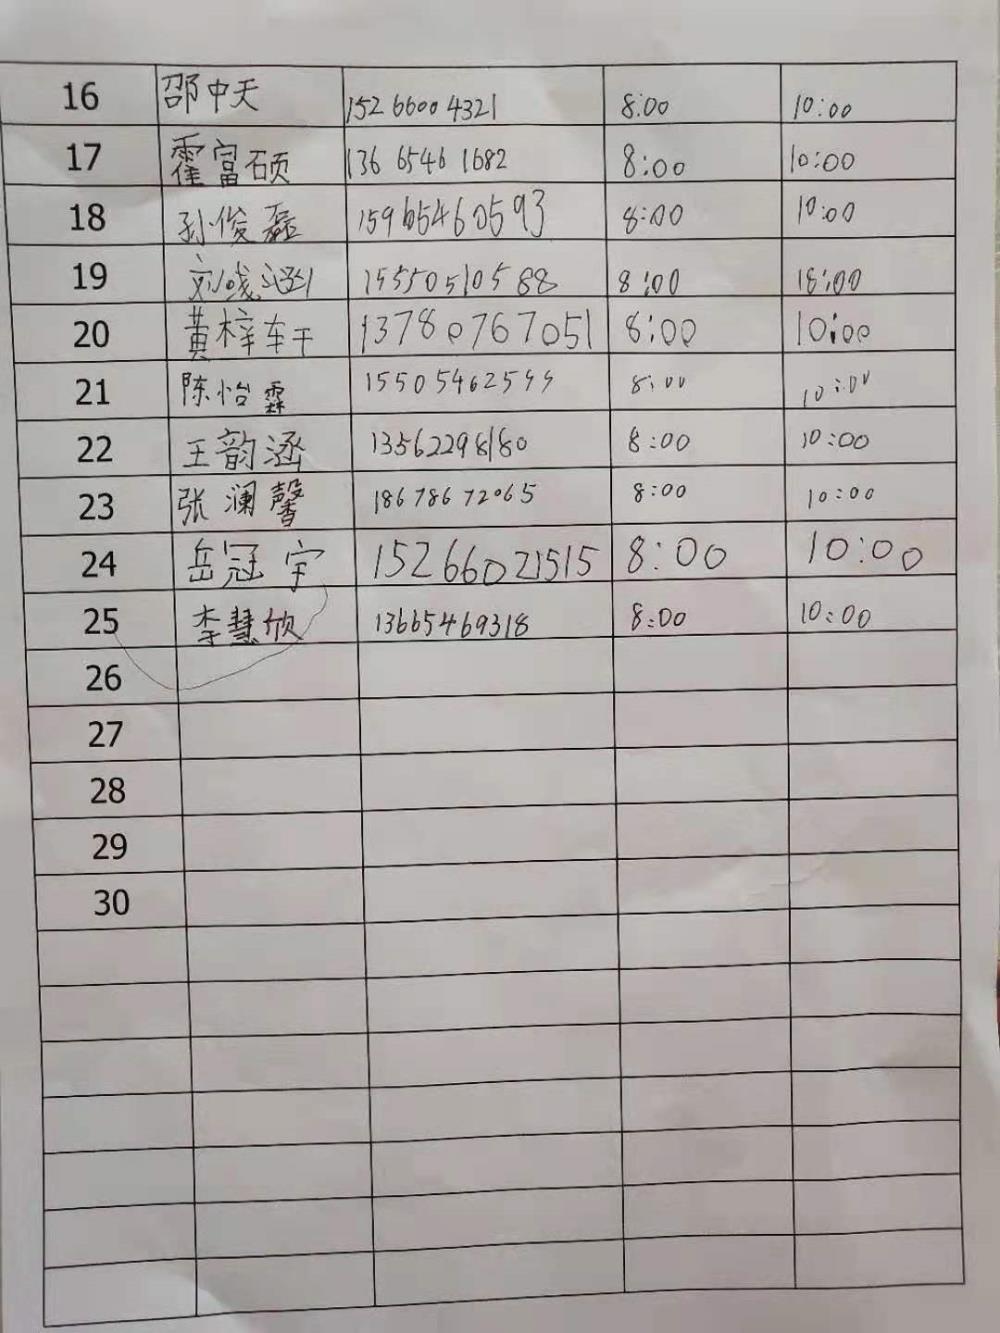 16 邵中天 152 6600 4321 8:00 10:00
17 霍富硕 136 6546 1682 8:00 10:00
18 孙俊磊 15965460593 8:00 10:00
19 刘 涵 15550510588 8:00 18:00
20 黄梓轩 13780767051 8:00 10:00
21 陈怡霖 15505462599 8:00 10:00
22 王韵涵 13562298180 8:00 10:00
23 张澜馨 186 786 72065 8:00 10:00
24 岳冠宇 15266021515 8:00 10:00
25 李慧欣 13665469318 8:00 10:00
26
27
28
29
30